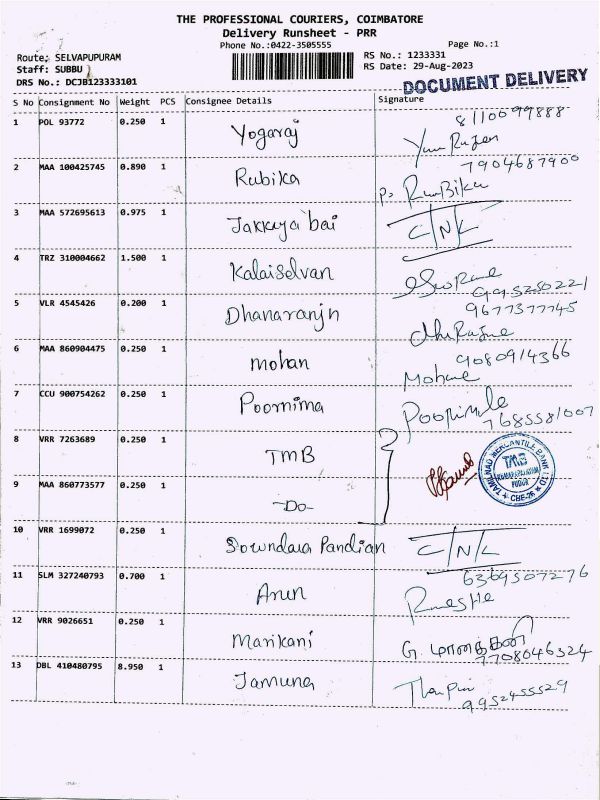 THE PROFESSIONAL COURIERS, COIMBATORE
Delivery Runsheet - PRR
Phone No.:0422-3505555
Page No.:1
Route: SELVAPUPURAM
RS No.: 1233331
Staff: SUBBU
RS Date: 29-Aug-2023
DRS No.: DCJB123333101
DOCUMENT DELIVERY
S No Consignment No Weight PCS Consignee Details Signature
8110099888
1 POL 93772 0.250 1 Yogaraj
7904687900
2 MAA 100425745 0.890 1 Rubika
3 MAA 572695613 0.975 1 Jakkya bai C/N/L
4 TRZ 310004662 1.500 1 Kalaiselvan
9677377745
5 VLR 4545426 0.200 1 Dhanaranjn
9080914366
6 MAA 860904475 0.250 1 mohan
7 CCU 900754262 0.250 1 Poornima
7685581007
8 VRR 7263689 0.250 1 TMB
TAMILNAD MERCANTILE BANK LTD
TMB
CBE-26
9 MAA 860773577 0.250 1 -Do-
10 VRR 1699072 0.250 1 Sowndara Pandian C/N/L
6369507276
11 SLM 327240793 0.700 1 Arun
12 VRR 9026651 0.250 1 Marikani G. மாரிக்கனி
7708046324
13 DBL 410480795 8.950 1 Jamuna
9952455529